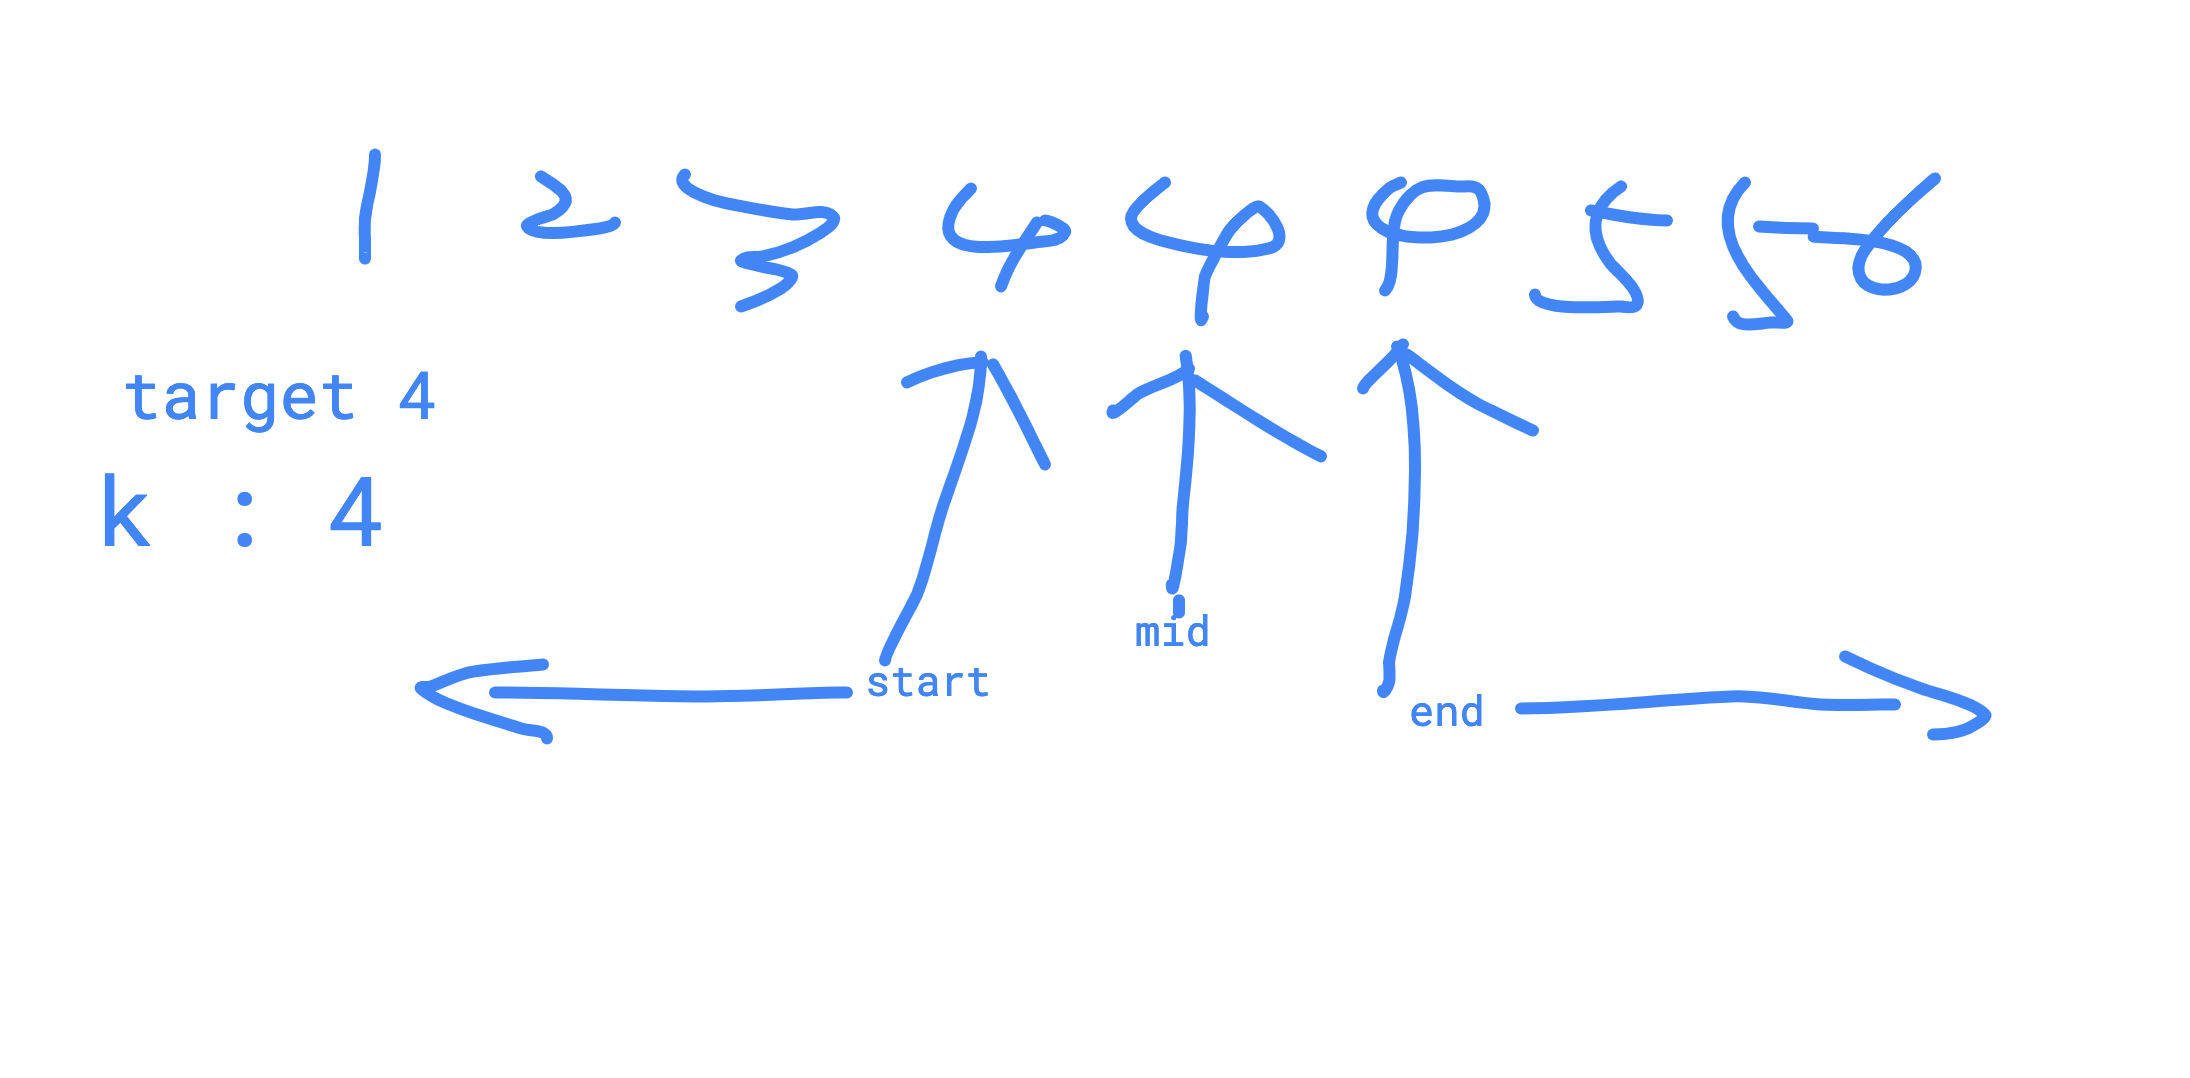 1 2 3 4 4 4 5 5 6
target 4
k : 4
mid
start
end